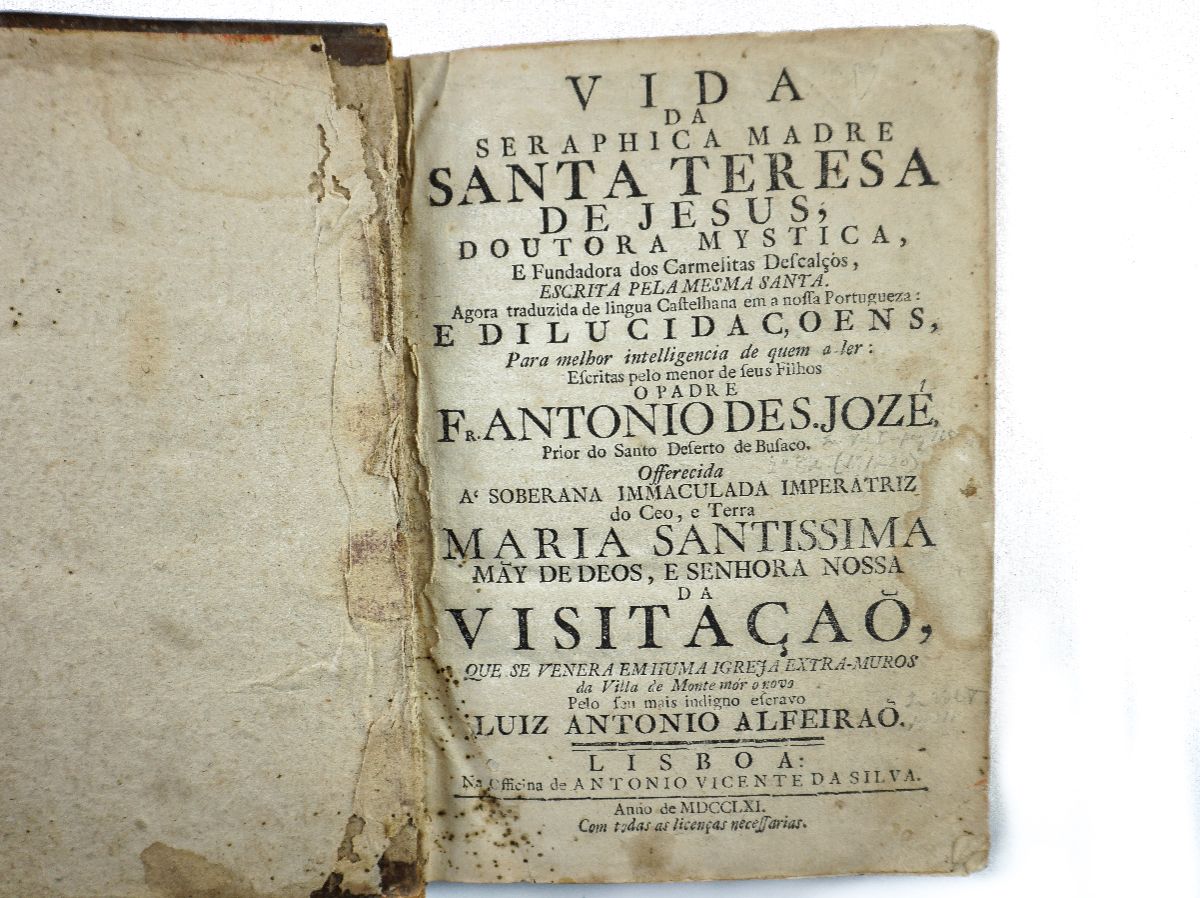 VIDA
DA
SERAPHICA MADRE
SANTA TERESA
DE JESUS,
DOUTORA MYSTICA,
E Fundadora dos Carmelitas Deſcalços,
ESCRITA PELA MESMA SANTA.
Agora traduzida de lingua Caſtelhana em a noſſa Portugueza:
E DILUCIDAC,OENS,
Para melhor intelligencia de quem a ler:
Eſcritas pelo menor de ſeus Filhos
O PADRE
FR. ANTONIO DE S. JOZÉ,
Prior do Santo Deſerto de Buſaco.
Offerecida
A' SOBERANA IMMACULADA IMPERATRIZ
do Ceo, e Terra
MARIA SANTISSIMA
MÃY DE DEOS, E SENHORA NOSSA
DA
VISITAÇAÕ,
QUE SE VENERA EM HUMA IGREJA EXTRA-MUROS
da Villa de Monte mór o novo
Pelo ſeu mais indigno eſcravo
LUIZ ANTONIO ALFEIRAÕ.
LISBOA:
Na Officina de ANTONIO VICENTE DA SILVA.
Anno de MDCCLXI.
Com todas as licenças neceſſarias.